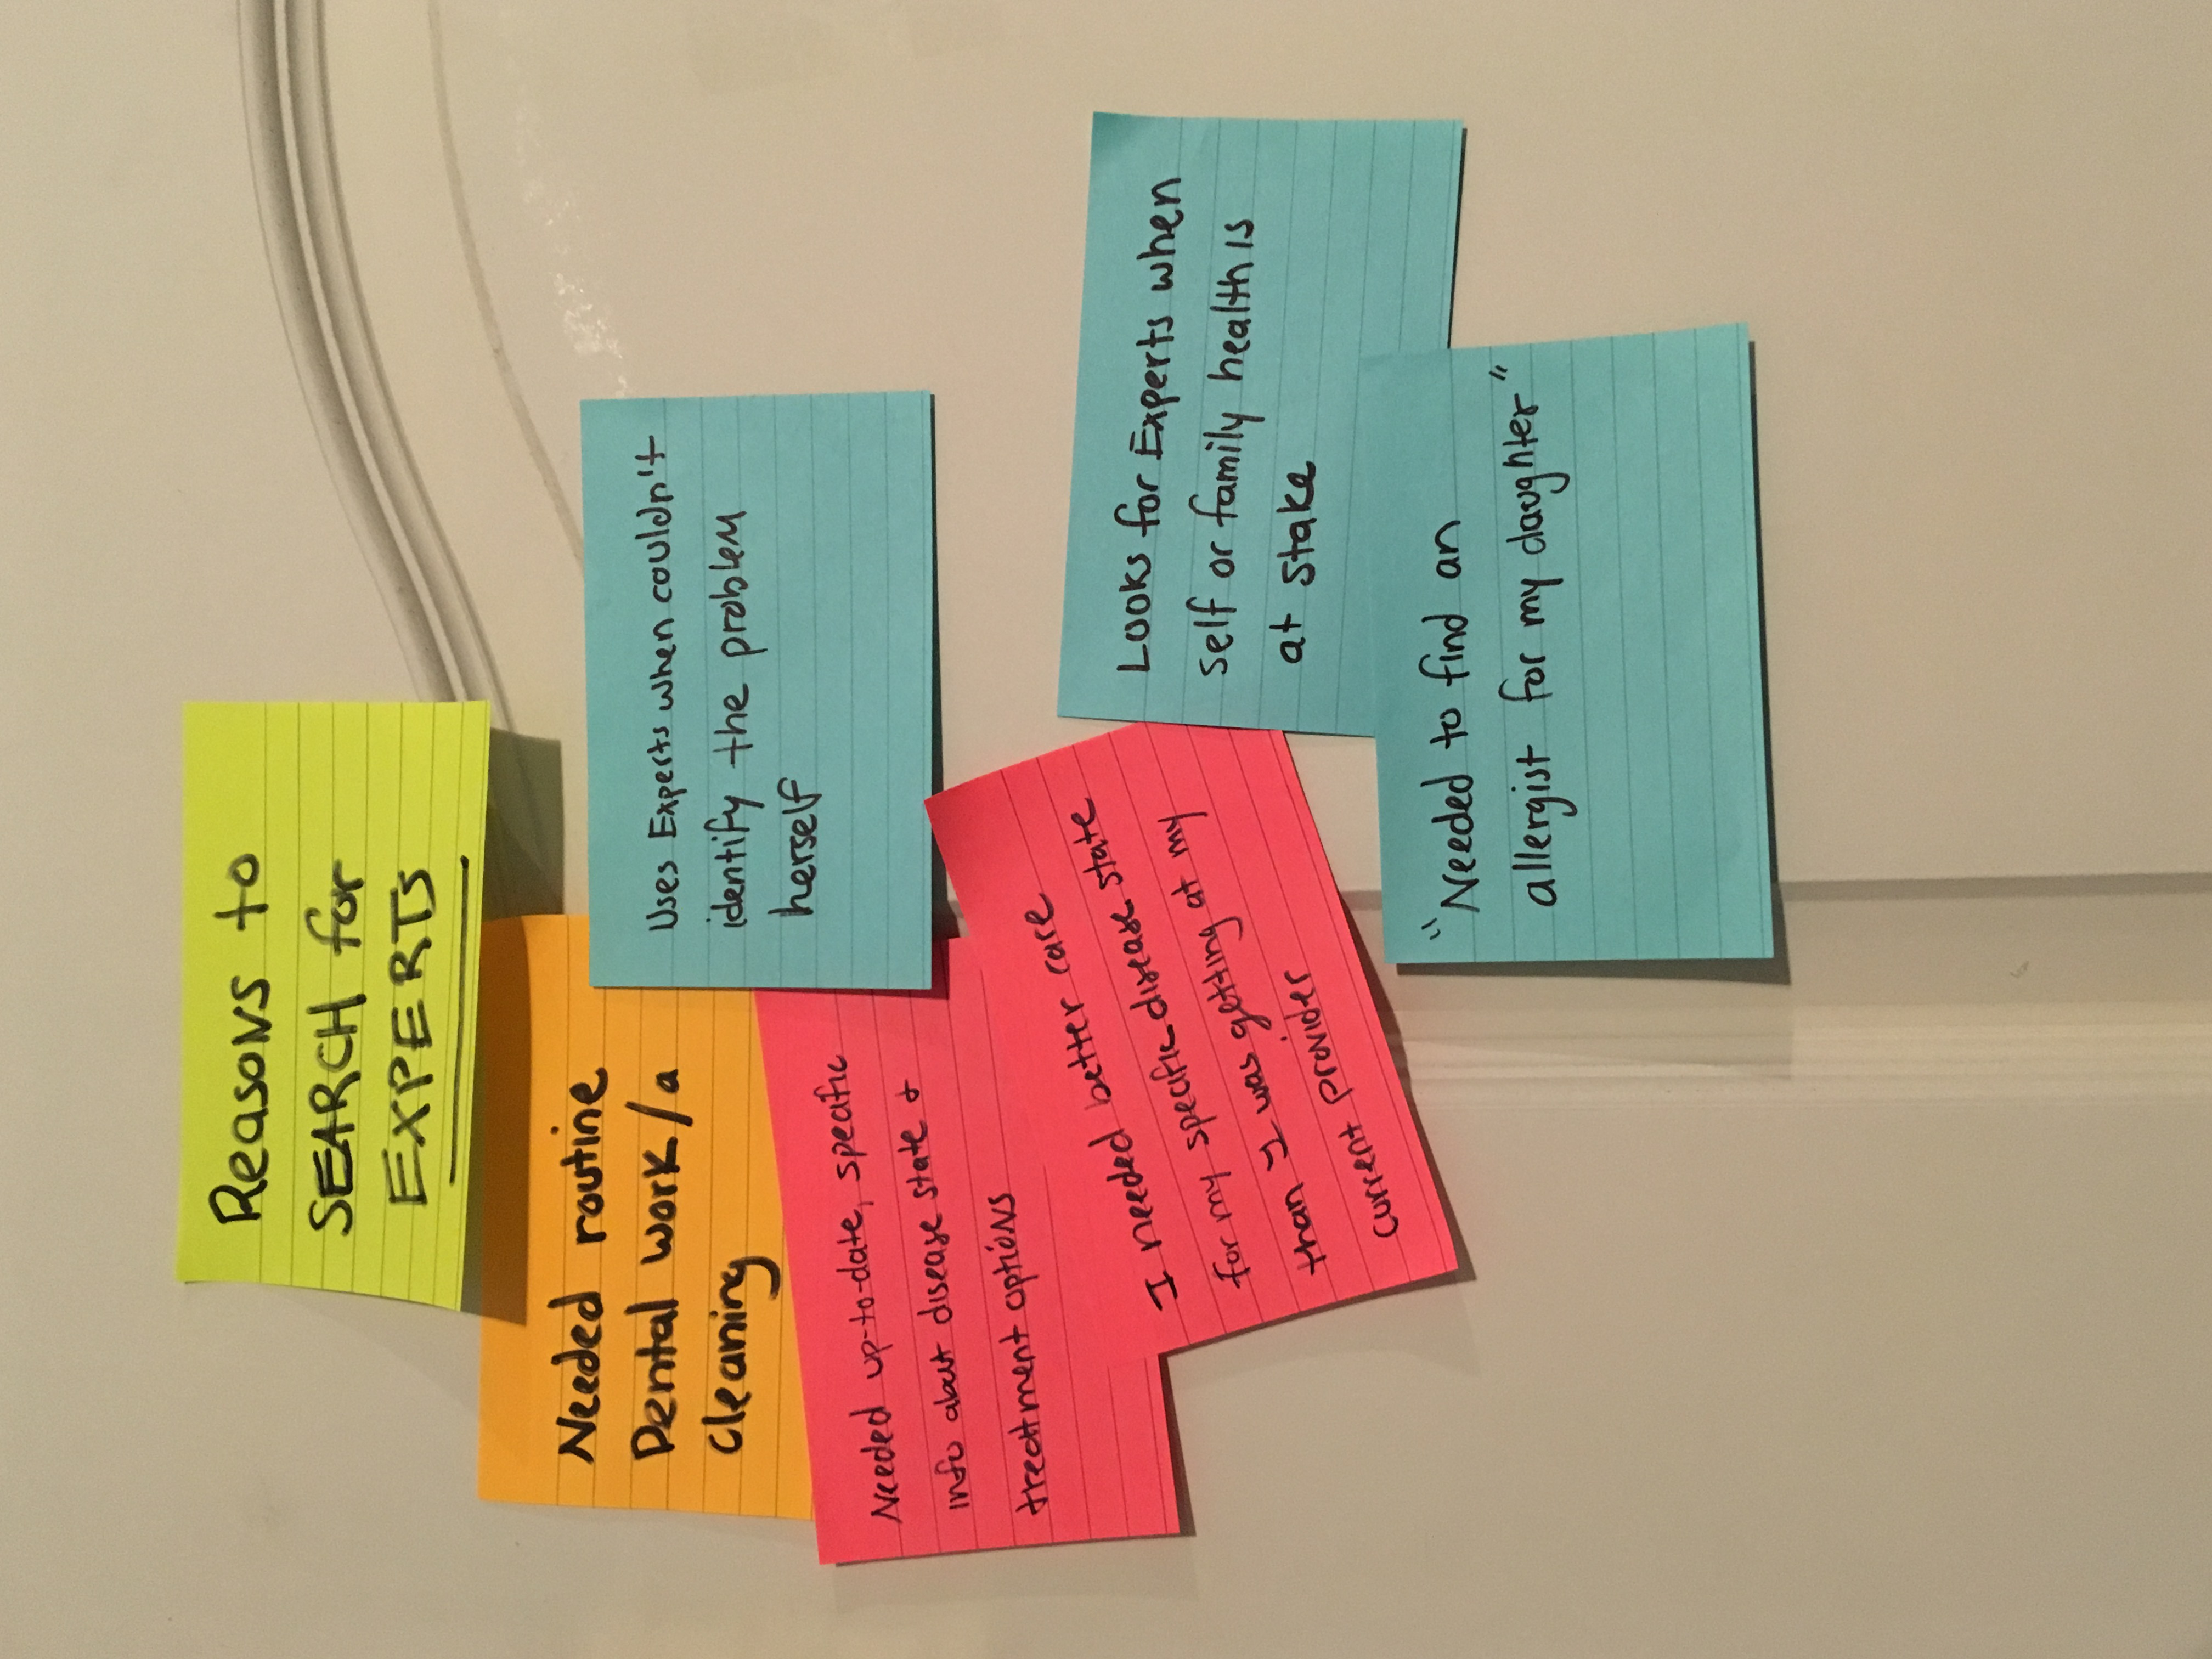 Reasons to
SEARCH for
EXPERTS
Needed routine
Dental work/a
cleaning
Uses Experts when couldn't
identify the problem
herself
Needed up-to-date, specific
info about disease state &
treatment options
I needed better care
for my specific disease state
than I was getting at my
current provider
Looks for Experts when
self or family health is
at stake
"Needed to find an
allergist for my daughter"